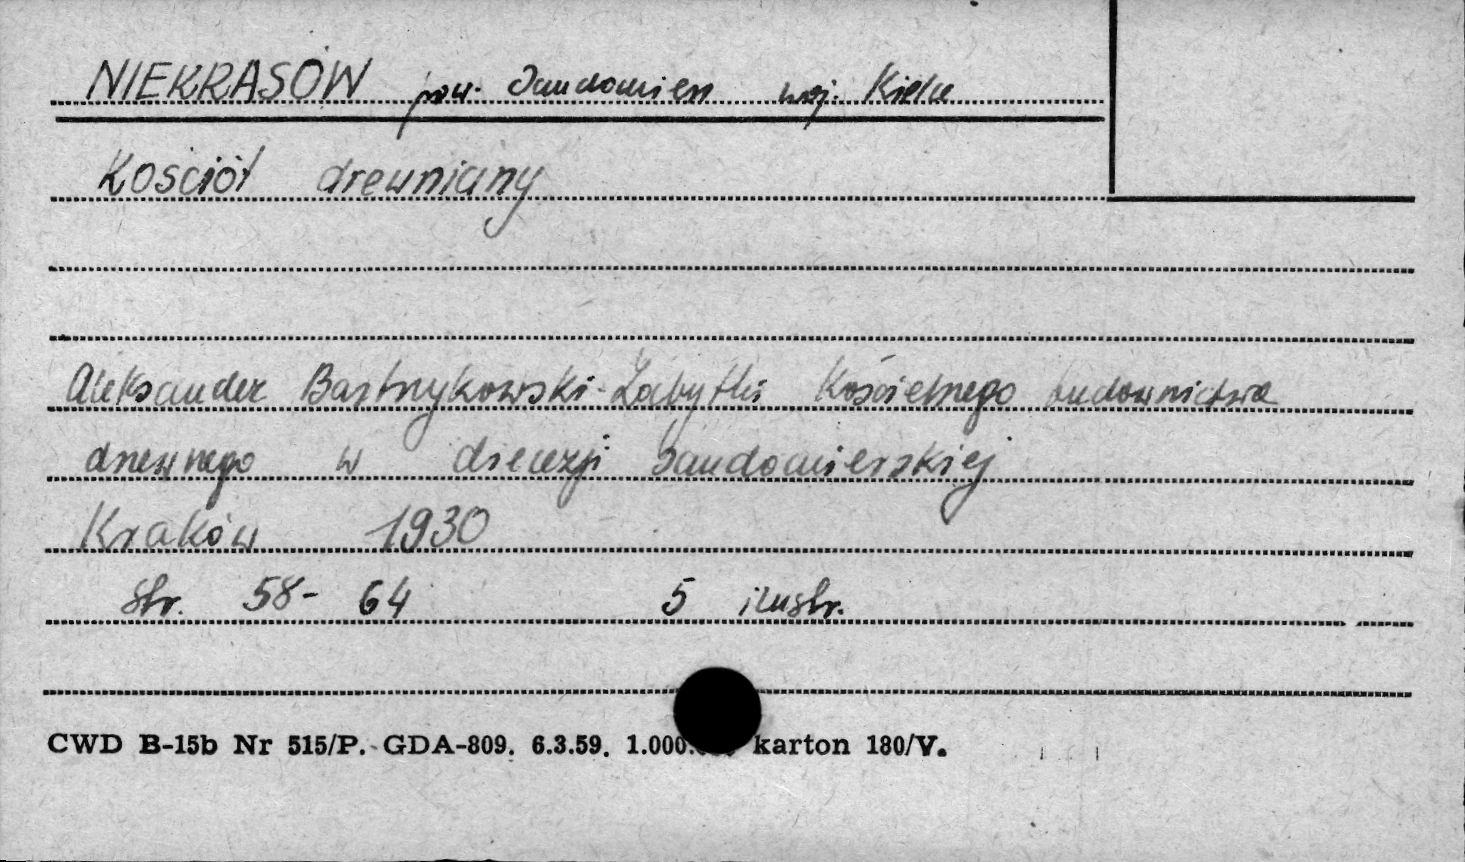 NIEKRASÓW pow. Sandomierz woj. Kielce
Kościół drewniany
Aleksander Bastrzykowski - Zabytki Kościelnego budownictwa
drzewnego w diecezji sandomierskiej
Kraków 1930
str. 58-64 5 ilustr.
CWD B-15b Nr 515/P. GDA-809. 6.3.59. 1.000. karton 180/V.